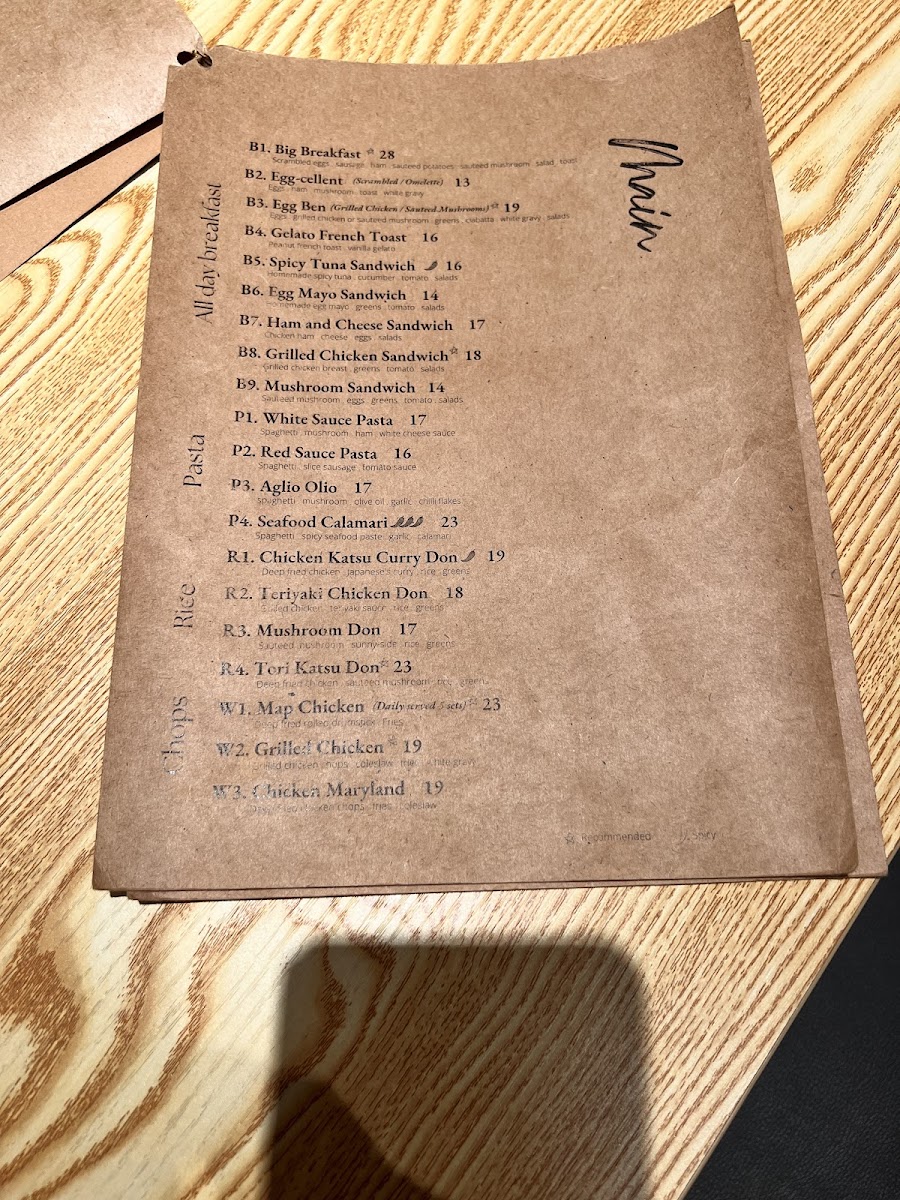 Main
All day breakfast
B1. Big Breakfast ☆ 28
Scrambled eggs . sausage . ham . sauteed potatoes . sauteed mushroom . salad . toast
B2. Egg-cellent (Scrambled / Omelette) 13
Eggs . ham . mushroom . toast . white gravy
B3. Egg Ben (Grilled Chicken / Sauteed Mushrooms) ☆ 19
Eggs . grilled chicken or sauteed mushroom . greens . ciabatta . white gravy . salads
B4. Gelato French Toast 16
Peanut french toast . vanilla gelato
B5. Spicy Tuna Sandwich 16
Homemade spicy tuna . cucumber . tomato . salads
B6. Egg Mayo Sandwich 14
Homemade egg mayo . greens . tomato . salads
B7. Ham and Cheese Sandwich 17
Chicken ham . cheese . eggs . salads
B8. Grilled Chicken Sandwich ☆ 18
Grilled chicken breast . greens . tomato . salads
B9. Mushroom Sandwich 14
Sauteed mushroom . eggs . greens . tomato . salads
Pasta
P1. White Sauce Pasta 17
Spaghetti . mushroom . ham . white cheese sauce
P2. Red Sauce Pasta 16
Spaghetti . slice sausage . tomato sauce
P3. Aglio Olio 17
Spaghetti . mushroom . olive oil . garlic . chilli flakes
P4. Seafood Calamari 23
Spaghetti . spicy seafood paste . garlic . calamari
Rice
R1. Chicken Katsu Curry Don 19
Deep fried chicken . Japanese's curry . rice . greens
R2. Teriyaki Chicken Don 18
Grilled chicken . teriyaki sauce . rice . greens
R3. Mushroom Don 17
Sauteed mushroom . sunny-side . rice . greens
R4. Tori Katsu Don ☆ 23
Deep fried chicken . sauteed mushroom . rice . greens
Chops
W1. Map Chicken (Daily served 5 sets) ☆ 23
Deep fried rolled drumstick . Fries
W2. Grilled Chicken ☆ 19
Grilled chicken chops . coleslaw . fries . white gravy
W3. Chicken Maryland 19
chicken chops . fries . coleslaw
☆ Recommended Spicy